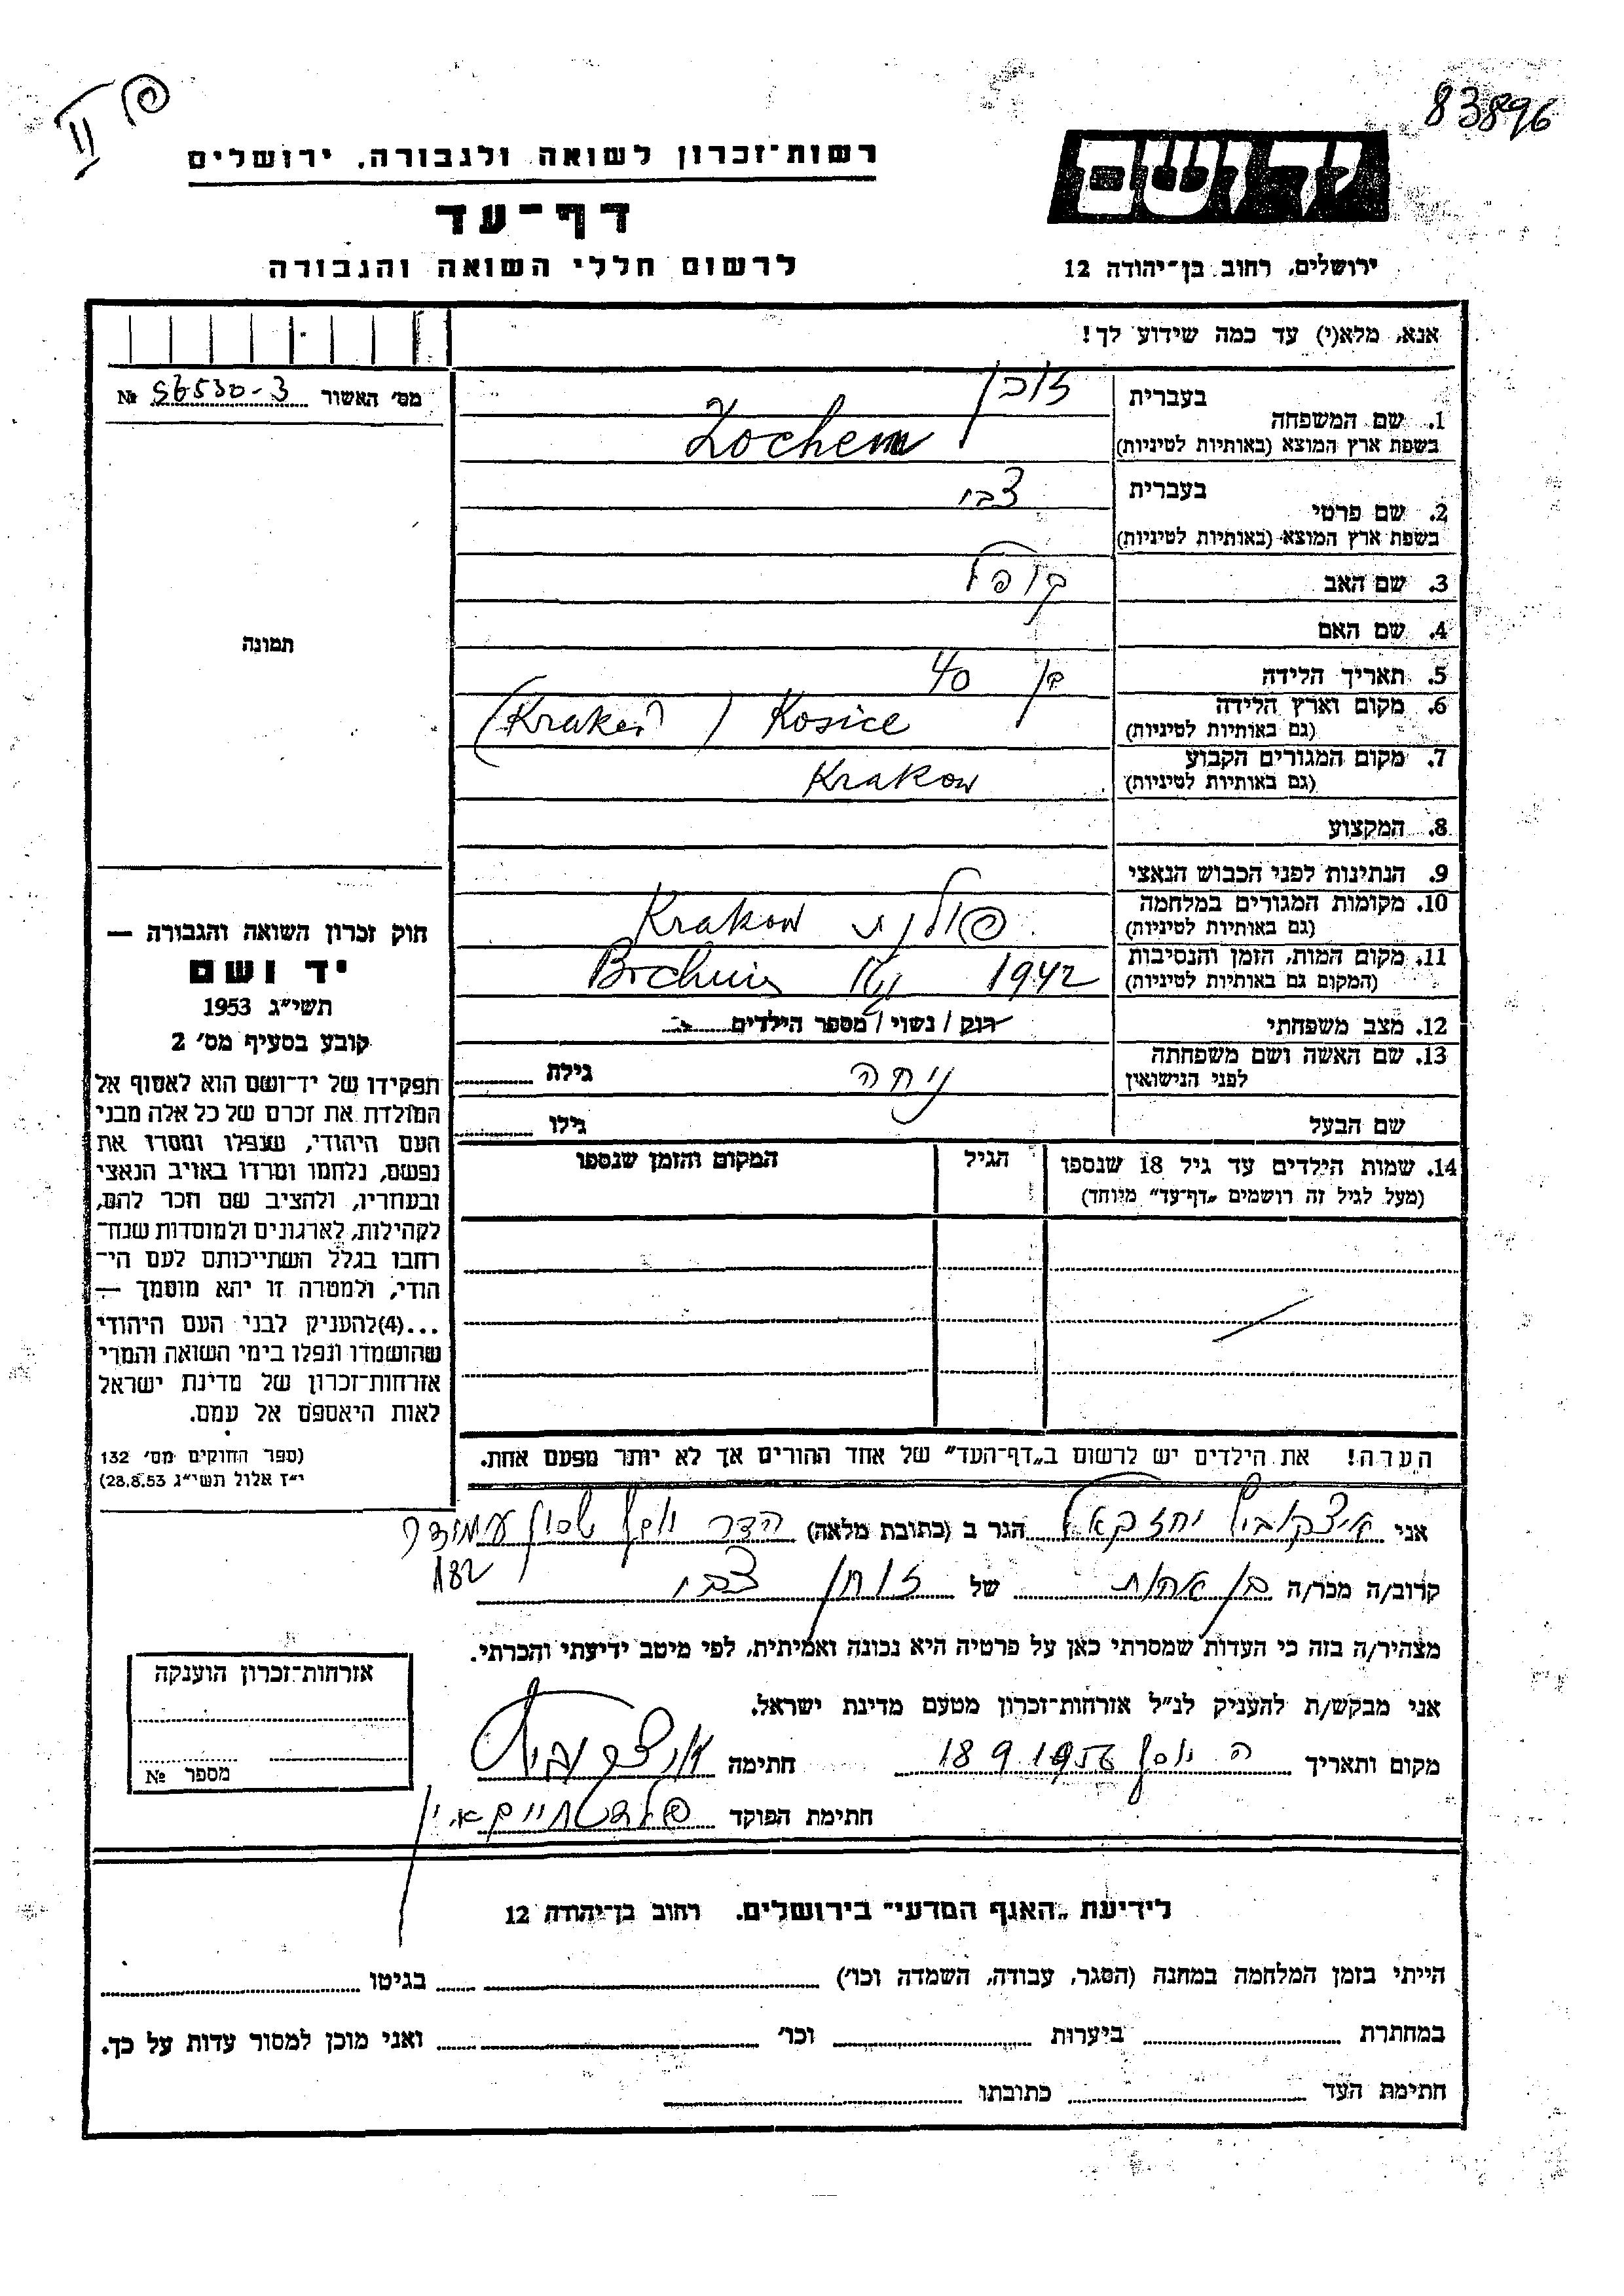 83896
רשות־זכרון לשואה ולגבורה, ירושלים
דף־עד
לרשום חללי השואה והגבורה
יד ושם
ירושלים, רחוב בן־יהודה 12
אנא, מלא(י) עד כמה שידוע לך!
מס׳ האשור 56530-3 №
תמונה
1. שם המשפחה
בעברית
בשפת ארץ המוצא (באותיות לטיניות) Zochem
2. שם פרטי
בעברית צבי
בשפת ארץ המוצא (באותיות לטיניות)
3. שם האב קופל
4. שם האם
5. תאריך הלידה בן 40
6. מקום וארץ הלידה
(גם באותיות לטיניות) Kosice
7. מקום המגורים הקבוע
(גם באותיות לטיניות) Krakow
8. המקצוע
9. הנתינות לפני הכבוש הנאצי
10. מקומות המגורים במלחמה
(גם באותיות לטיניות) Krakow
11. מקום המות, הזמן והנסיבות
(המקום גם באותיות לטיניות) 1942
12. מצב משפחתי רווק / נשוי / מספר הילדים
13. שם האשה ושם משפחתה
לפני הנישואין גילת
שם הבעל גילו
14. שמות הילדים עד גיל 18 שנספו
(מעל לגיל זה רושמים „דף־עד״ מיוחד)
הגיל
המקום והזמן שנספו
חוק זכרון השואה והגבורה —
יד ושם
תשי״ג 1953
קובע בסעיף מס׳ 2
תפקידו של יד־ושם הוא לאסוף אל
המולדת את זכרם של כל אלה מבני
העם היהודי, שנפלו ומסרו את
נפשם, נלחמו ומרדו באויב הנאצי
ובעוזריו, ולהציב שם וזכר להם,
לקהילות, לארגונים ולמוסדות שנח־
רחבו בגלל השתייכותם לעם הי־
הודי, ולמטרה זו יהא מוסמך —
...(4)להעניק לבני העם היהודי
שהושמדו ונפלו בימי השואה והמרי
אזרחות־זכרון של מדינת ישראל
לאות היאספם אל עמם.
(ספר החוקים מס׳ 132
י״ד אלול תשי״ג 28.8.53)
הערה! את הילדים יש לרשום ב„דף־העד״ של אחד ההורים אך לא יותר מפעם אחת.
אני איצקוביץ יחזקאל הגר ב (כתובת מלאה) הדר יוסף
182
קרוב/ה מכר/ה בן אחות של צבי
מצהיר/ה בזה כי העדות שמסרתי כאן על פרטיה היא נכונה ואמיתית, לפי מיטב ידיעתי והכרתי.
אני מבקש/ת להעניק לנ״ל אזרחות־זכרון מטעם מדינת ישראל.
מקום ותאריך ה יוסף 18 9 1956 חתימה איצקוביץ
חתימת הפוקד
אזרחות־זכרון הוענקה
מספר №
לידיעת „האגף המדעי״ בירושלים. רחוב בן־יהודה 12
הייתי בזמן המלחמה במחנה (הסגר, עבודה, השמדה וכו׳) בגיטו
במחתרת ביערות וכו׳ ואני מוכן למסור עדות על כך.
חתימת העד כתובתו